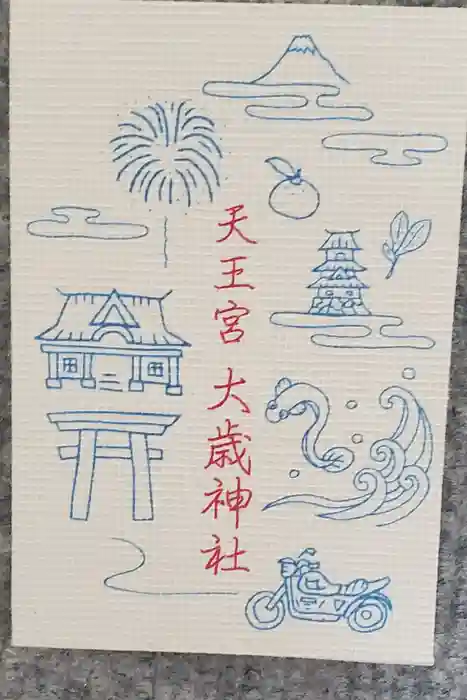 天王宮 大歳神社